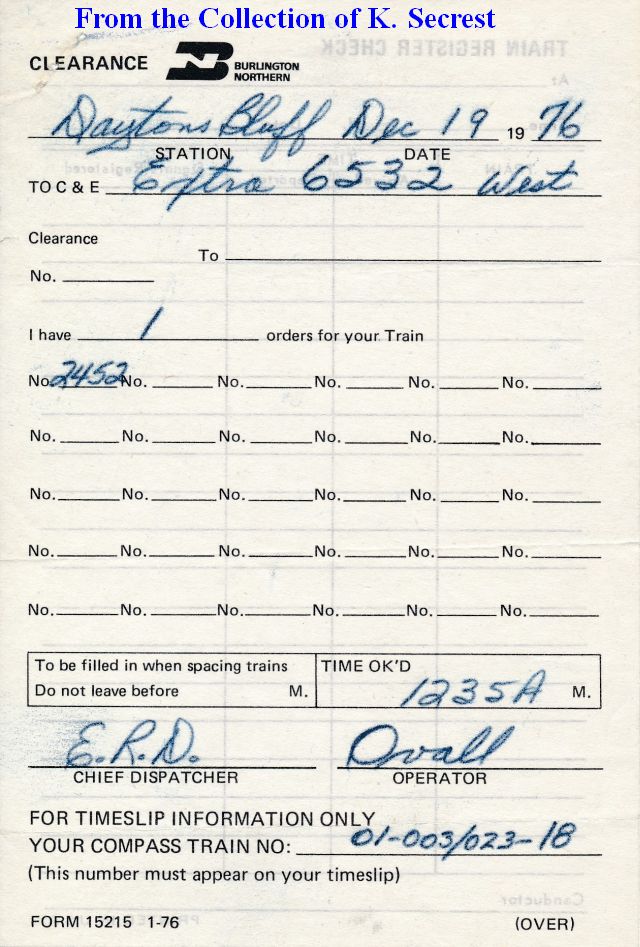 From the Collection of K. Secrest
CLEARANCE BURLINGTON NORTHERN
Daytons Bluff Dec 19 1976
STATION DATE
TO C & E Extra 6532 West
Clearance
To
No.
I have 1 orders for your Train
No. 2452 No. No. No. No. No.
No. No. No. No. No. No.
No. No. No. No. No. No.
No. No. No. No. No. No.
No. No. No. No. No. No.
To be filled in when spacing trains TIME OK'D
Do not leave before M. 1235A M.
E.R.D. Ovall
CHIEF DISPATCHER OPERATOR
FOR TIMESLIP INFORMATION ONLY
YOUR COMPASS TRAIN NO: 01-003/023-18
(This number must appear on your timeslip)
FORM 15215 1-76 (OVER)